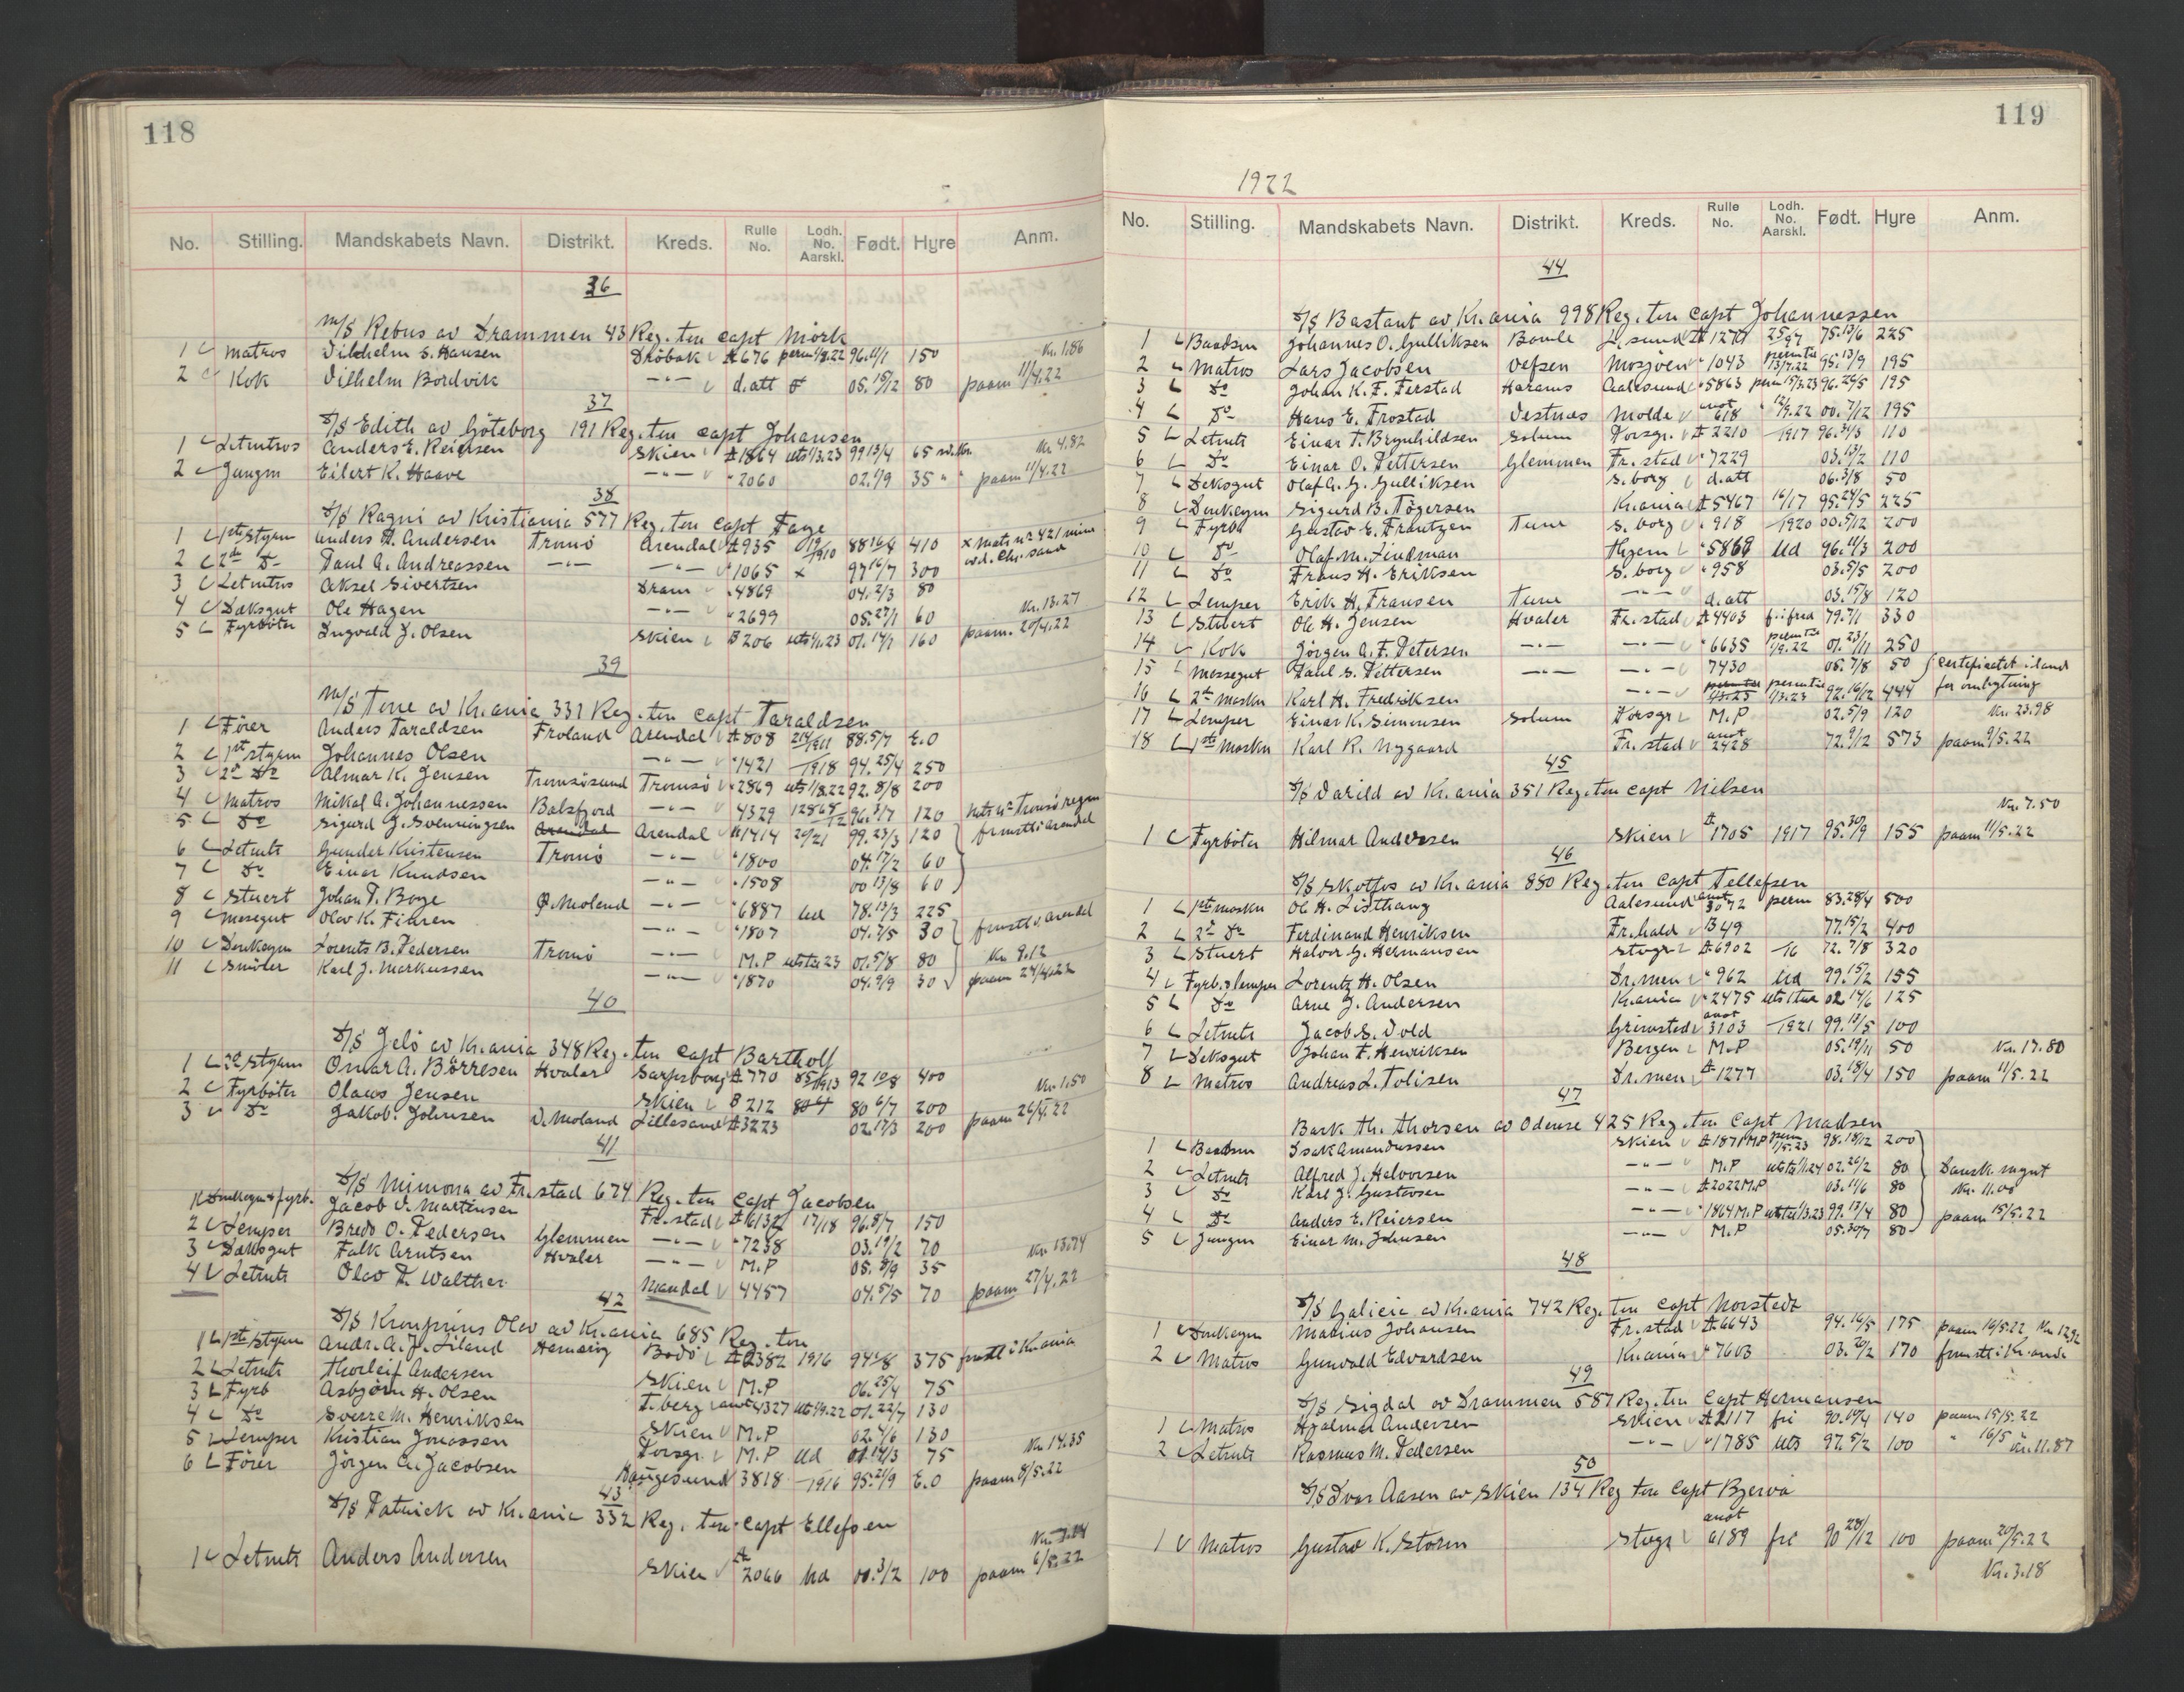 118
No. Stilling. Mandskabets Navn. Distrikt. Kreds. Rulle No. Lodh. No. Aarskl. Født. Hyre Anm.
36
M/S Rebus av Drammen 43 Reg. ton Capt Mörk
1 Matros Vilhelm S. Hansen Dröbak A 676 perm 1/8.22 96. 11/1 150 Kr. 1.86
2 Kok Vilhelm Bordvik -"- d.att 05. 15/12 80 paam 11/4.22
37
S/S Edith av Göteborg 191 Reg. ton Capt Johansen
1 Letmtros Anders E. Reiersen Skien A 1864 uts 1/3.23 99 13/4 65 sv. Kr. Kr 4.82
2 Jungm Eilert K. Haave -"- " 2060 02. 1/9 35 " " paam 11/4.22
38
S/S Ragni av Kristiania 577 Reg. ton Capt Faye
1 1ste Styrm Anders A. Andersen Tromö Arendal A 935 19/1910 88 16/4 410 x Mats nr 421 mine
2 2den Do Paul A. Andreassen -"- -"- " 1065 x 97 16/7 300 vd. Chr.sand
3 Letmtros Aksel Sivertsen Dram " 4869 04. 2/3 80
4 Dæksgut Ole Hagen -"- " 2699 05. 27/1 60 Kr. 13.27
5 Fyrböter Ingvald J. Olsen Skien B 206 uts 1/1.23 01. 14/1 160 paam. 20/4.22
39
M/S Terne av Kr.ania 331 Reg. ton Capt Taraldsen
1 Förer Anders Taraldsen Froland Arendal A 808 214/1911 88. 5/7 E.O
2 1st Styrm Johannes Olsen -"- " 1421 1918 94. 25/4 250
3 2d Do Almar K. Jensen Tromsösund Tromsö " 2869 uts 1/8.22 92. 8/8 200
4 Matros Mikal A. Johannessen Balsfjord -"- " 4329 12868/12 96. 3/7 120
5 Do Sigurd J. Svenningsen Arendal Arendal A 1414 20/21 99. 23/3 120 frmstt i Arendal
6 Letmtr Gunder Kristensen Tromö -"- " 1800 04. 17/2 60
7 Do Einar Knudsen -"- " 1508 00 13/8 60
8 Stuert Johan T. Boye Ø. Moland -"- " 6887 Ud 78. 13/3 225
9 Messegut Olav K. Fiaren -"- " 1807 04. 7/5 30 frmstt v. Arendal
10 Donkeym Lorents B. Pedersen Tromö -"- M.P uts til 23 01. 5/8 80 Kr. 9.12
11 Smöler Karl J. Markussen -"- " 1870 04. 9/9 30 paam 24/4.22
40
S/S Jelö av Kr.ania 348 Reg. ton Capt Bartholf
1 2d Styrm Omar A. Börresen Hvaler Sarpsborg A 770 85/1913 92 10/8 400
2 Fyrböter Olaus Jensen Skien B 212 80 6/7 200 Kr. 1.50
3 Do Jakob Johnsen V. Moland Lillesand A 3223 02. 17/3 200 paam 26/4.22
41
S/S Mimona av Fr.stad 674 Reg. ton Capt Jacobsen
1 Donkeym & fyrb. Jacob V. Martinsen Fr.stad A 6132 17/18 96. 8/7 150
2 Lemper Bredo O. Pedersen Glemmen -"- " 7238 03. 19/2 70
3 Dæksgut Falk Arntsen Hvaler -"- M.P 05. 8/9 35 Kr. 13.74
4 Letmtr Olav F. Walther Mandal 4457 04. 5/5 70 paam 27/4.22
42
S/S Kronprins Olav av Kr.ania 685 Reg. ton
1 1ste Styrm Andr. A. P. Liland Hamarøy Bodö A 2382 1916 94 1/8 375 frmstt i Kr.ania
2 Letmtr Thorleif Andersen Skien M.P 06. 25/4 75
3 Fyrb Asbjörn H. Olsen T.berg anot 4327 uts 1/9.22 01. 22/7 130
4 Do Sverre M. Henriksen Skien M.P 02. 4/6 130
5 Lemper Kristian Jonassen Porsgr. M.P Ud 01 14/3 75 Kr. 14.35
6 Förer Jörgen A. Jacobsen Haugesund 3818 1916 95. 21/9 E.O paam 8/5.22
43
S/S Patrick av Kr.ania 332 Reg. ton Capt Ellefsen
1 Letmtr Anders Andersen Skien A 2066 Ud 00. 3/2 100 paam 6/5.22
119
1922
No. Stilling. Mandskabets Navn. Distrikt. Kreds. Rulle No. Lodh. No. Aarskl. Født. Hyre Anm.
44
S/S Bastant av Kr.ania 998 Reg. ton Capt Johannessen
1 Baadsm Johannes O. Gulliksen Bamle L.sund A 1270 25/97 75. 13/6 225
2 Matros Lars Jacobsen Vefsen Mosjöen " 1043 perm til 13/9.22 95. 13/9 195
3 Do Johan K. F. Ferstad Harams Aalesund " 5863 perm 15/3.23 96. 26/5 195
4 Do Hans E. Frostad Vestnes Molde anot 618 12/9.22 00. 7/12 195
5 Letmtr Einar T. Brynhildsen Solum Porsgr. A 2210 1917 96. 31/3 110
6 Do Einar O. Pettersen Glemmen Fr.stad " 7229 03. 13/2 110
7 Deksgut Olaf A. G. Gulliksen S.borg d.att 06. 3/8 50
8 Donkeym Sigurd B. Tögersen Kr.ania A 5467 16/17 95. 24/5 225
9 Fyrb Gustav E. Frantzen Tune S.borg " 918 1920 00. 5/12 200
10 Do Olaf M. Lindman Hjem " 5869 Ud 96. 11/3 200
11 Do Frans H. Eriksen S.borg " 958 03. 5/5 200
12 Lemper Erik H. Fransen Tune -"- d.att 03. 15/8 120
13 Stuert Ole H. Jensen Hvaler Fr.stad A 4403 fri fred 79. 7/1 330
14 Kok Jörgen A. F. Petersen -"- -"- " 6635 perm til 1/9.22 01. 23/11 250
15 Messegut Paul S. Pettersen -"- -"- 7430 05. 7/8 50 Certifikatet iland
16 2den Maskn Karl H. Fredriksen -"- perm til 1/3.23 92. 16/12 444 for ombytning
17 Lemper Einar K. Simonsen Solum Porsgr M.P 02. 5/9 120 Kr. 23.98
18 1ste Maskn Karl R. Nygaard Fr.stad anot 2428 72. 9/12 573 paam 9/5.22
45
S/S Varild av Kr.ania 351 Reg. ton Capt Nilsen
Kr. 7.50
1 Fyrböter Hilmar Andersen Skien A 1705 1917 95. 30/9 155 paam 11/5.22
46
S/S Skotfos av Kr.ania 850 Reg. ton Capt Tellefsen
1 1ste Maskn Ole H. Listhaug Aalesund anot 3072 perm 83. 28/4 500
2 2d Do Ferdinand Henriksen Fr.hald B 49 77. 15/2 400
3 Stuert Halvor G. Hermansen Stvgr A 6902 16 72. 7/8 320
4 Fyrb. & lemper Lorentz H. Olsen Dr.men " 962 Ud 99. 15/2 155
5 Do Arne J. Andersen Kr.ania " 2475 02. 14/6 125
6 Letmtr Jacob S. Vold Grimstad anot 3103 1921 99. 13/5 100
7 Deksgut Johan F. Henriksen Bergen M.P 05. 19/11 50 Kr. 17.80
8 Matros Andreas L. Tolisen Dr.men A 1277 03. 18/4 150 paam 11/5.22
47
Bark Th. Thorsen av Odense 425 Reg. ton Capt Madsen
1 Baadsm Isak Amandussen Skien A 1871 M.P perm 1/5.23 98. 18/12 200
2 Letmtr Alfred J. Halvorsen -"- M.P uts til 1/1.24 02. 26/2 80 Dansk
3 Do Karl J. Gustavsen -"- A 2022 M.P 03. 11/6 80 Kr. 11.00
4 Do Anders E. Reiersen -"- " 1864 M.P uts til 1/3.23 99. 13/4 80 paam 15/5.22
5 Jungm Einar M. Johnsen -"- M.P 05. 30/7 80
48
S/S Galicia av Kr.ania 742 Reg. ton Capt Norstedt
1 Donkeym Marius Johansen Fr.stad A 6643 94. 16/5 175 paam 16/5.22 Kr 12.92
2 Matros Gunvald Edvardsen Kr.ania " 7603 03. 20/2 170 frmstt i Kr.ania
49
S/S Sigdal av Drammen 587 Reg. ton Capt Hermansen
1 Matros Hjalmar Andersen Skien A 2117 fri 90. 14/4 140 paam 15/5.22
2 Letmtr Rasmus M. Pedersen -"- " 1785 uts 97. 5/2 100 " 16/5 Kr. 11.87
50
S/S Ivar Aasen av Skien 134 Reg ton Capt Bjerva
1 Matros Gustav K. Storm Stvgr anot 6189 fri 90 28/12 100 paam 20/5.22
Kr. 3.18